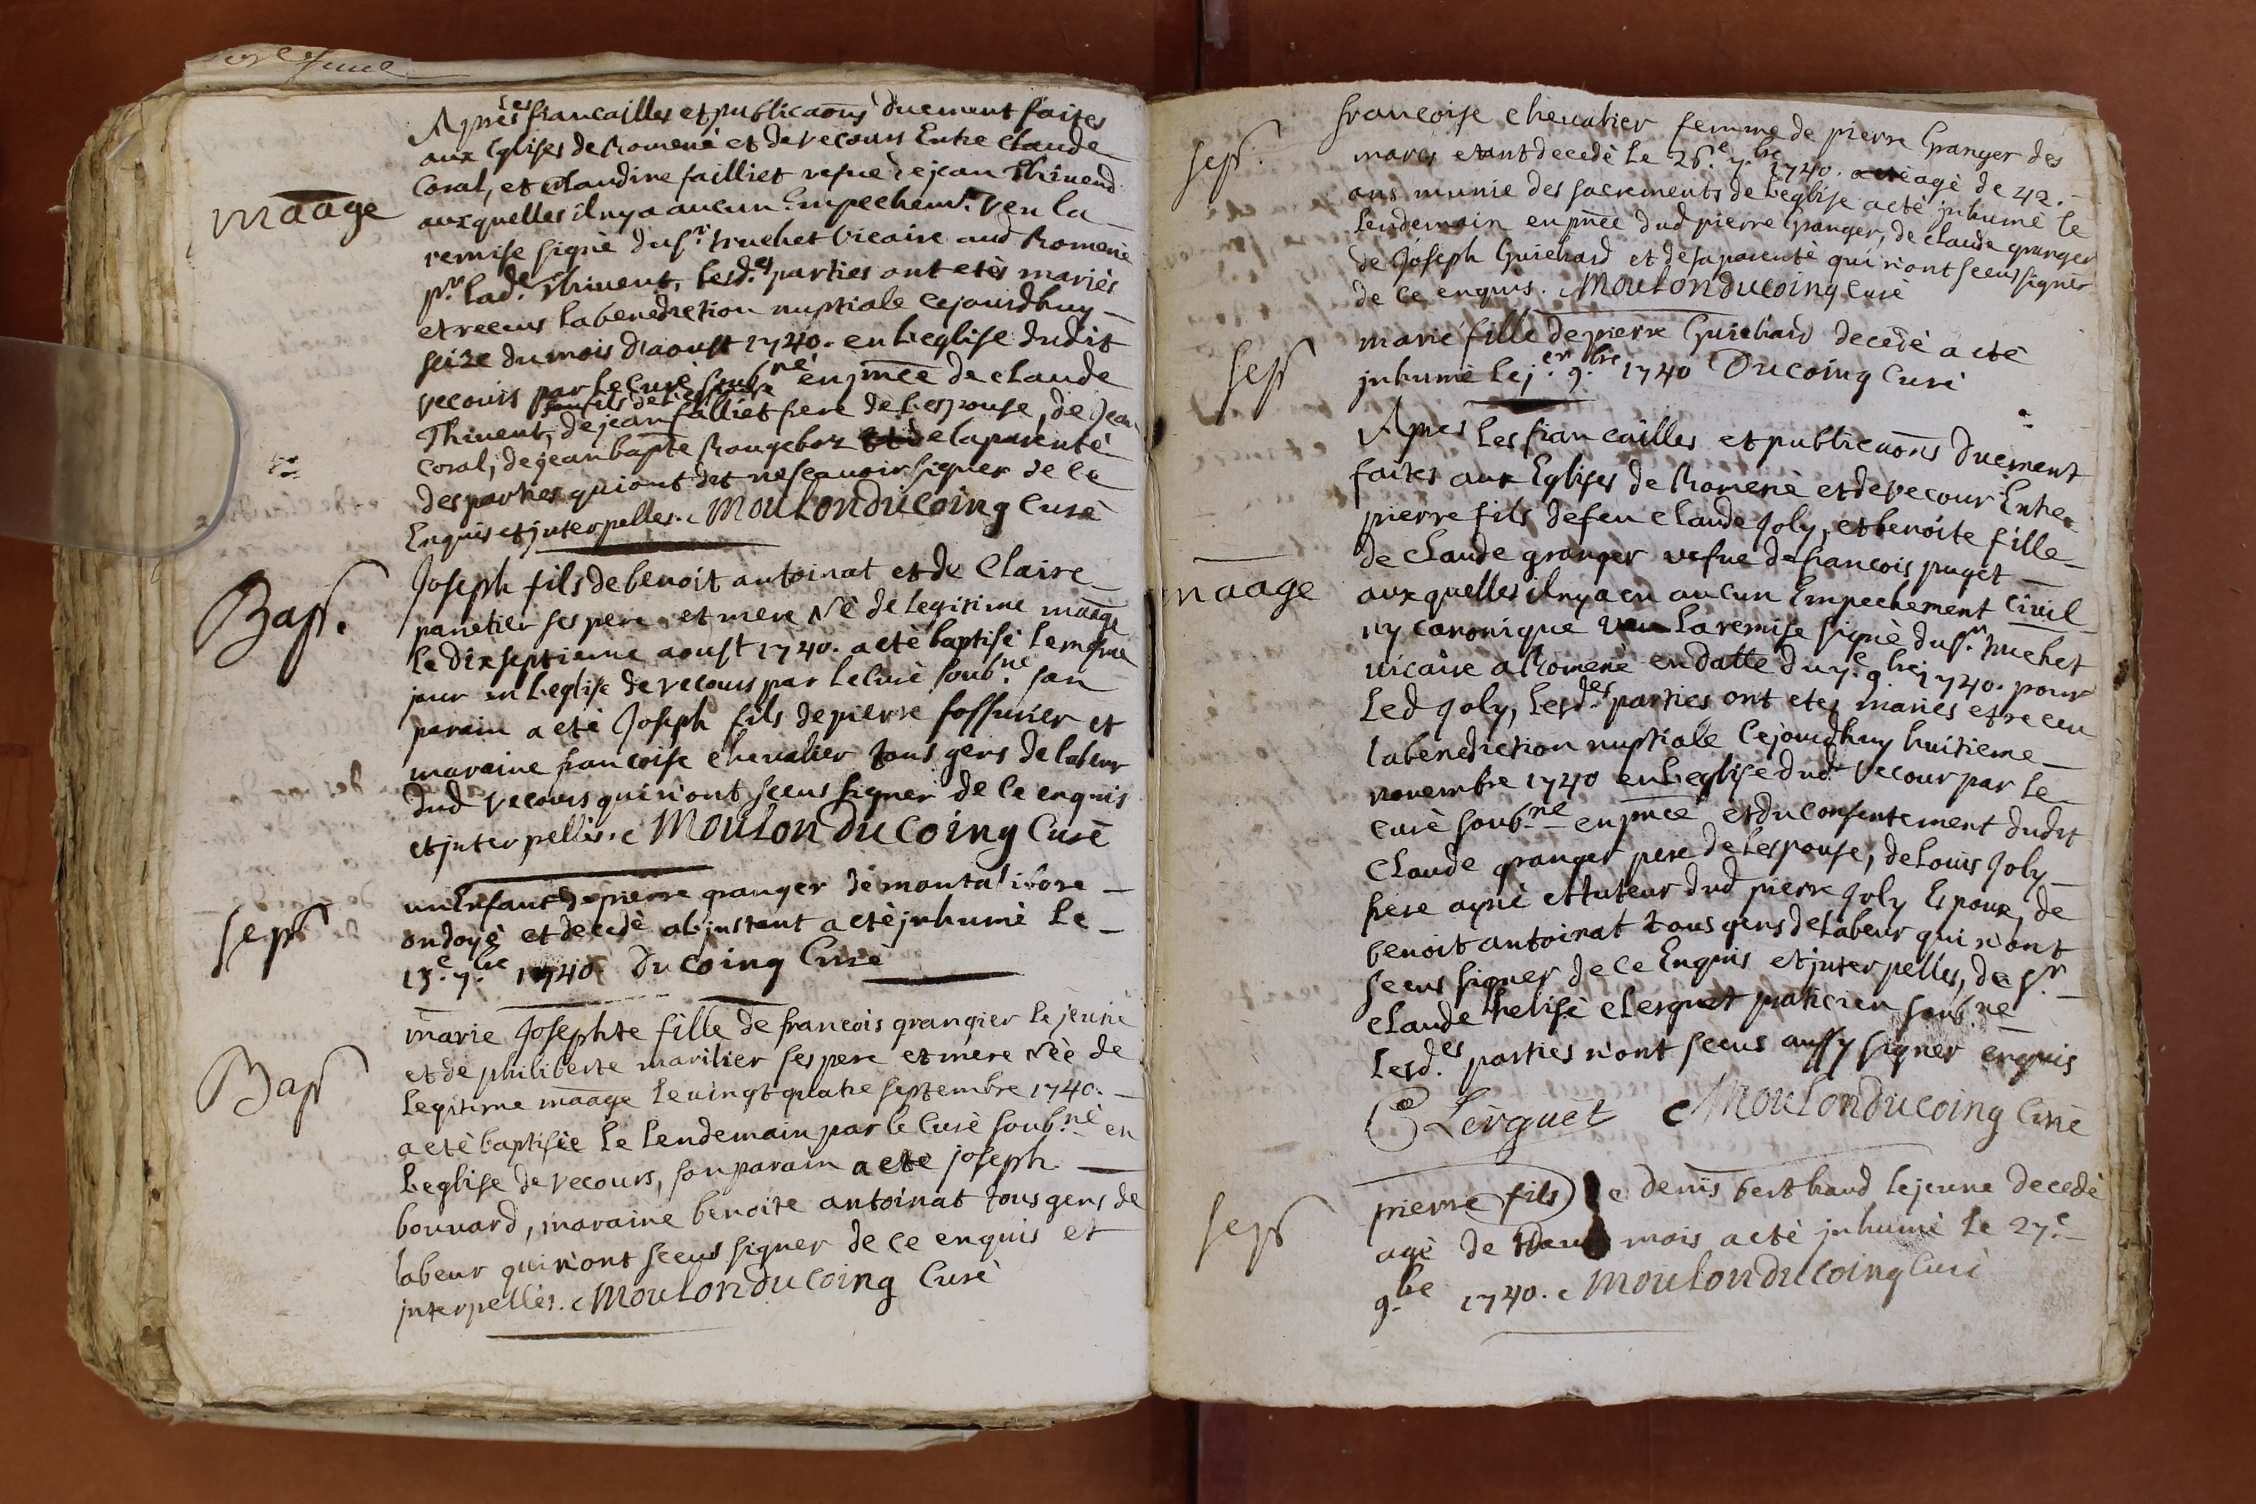 maage
Apres les fiancailles et publicaons duement faites
aux Eglises de Romenè et de vecours Entre Claude
Coral, et Claudine failliet vefue de jean Thiuend
auxquelles il ny a aucun Empechemt. Veu la
remise signè du sr. truchet Vicaire aud Romenè
pr. lade. Thiuent, lesd.es parties ont etès mariès
et receus la benediction nuptiale cejourdhuy
seize du mois d'aoust 1740. en Leglise dudit
vecours par le Curè soub.nè en pn̄ce de Claude
Thiuent, de jean falliet frere de Lespouse, de Jean
Coral, de jean bapte Rougeboz et de la parentè
des parties qui ont dit ne scauoir signer de ce
Enquis et jnterpelles. Moulonducoing Curè
Bap.
Joseph fils de benoit antoinat et de Claire
panetier ses pere et mere Nè de legitime maage
le dix septieme aoust 1740. a etè baptisè le meme
jour en Leglise de vecours par le Curè soub.nè son
parain a etè Joseph fils de pierre fossurier et
maraine francoise cheualier tous gens de labeur
dud vecours qui n'ont sceus signer de ce enquis
et jnterpellès. Moulonducoing Curè
sep
un Enfant de pierre granger de
ondoyè et decedè a Linstant a etè jnhumè le
13.e 7.bre 1740. Ducoing Curè
Bap
marie Josephte fille de francois grangier le jeune
et de philiberte marilier ses pere et mere Nèe de
legitime maage le uingt quatre septembre 1740.
a etè baptisèe le Lendemain par le Curè soub.nè en
Leglise de vecours, son parain a ete joseph
bouuard, maraine benoite antoinat tous gens de
labeur qui n'ont sceus signer de ce enquis et
jnterpellès. Moulonducoing Curè
sep.
francoise cheualier femme de pierre Granger des
mares etant decedè le 26.e 7.bre 1740. agè de 42.
ans munie des sacrements de Leglise a etè jnhumè le
Lendemain en pn̄ce dud pierre Granger, de Claude granger
de Joseph Guichard et de sa parentè qui n'ont sceus signer
de ce enquis. Moulonducoing Curè
sep
marie fille de pierre Guichard decedè a etè
jnhumè le j.er 9.bre 1740 Ducoing Curè
maage
Apres les fiancailles et publicaons duement
faites aux Eglises de Romenè et de vecour Entre
pierre fils de feu Claude Joly, et benoite fille
de Claude granger vefue de francois puget
auxquelles il ny a eu aucun Empechement Ciuil
ny canonique veu La remise signè du sr. truchet
uicaire a Romenè en datte du 7.e 9.bre 1740. pour
Led Joly, lesd.es parties ont etes mariès et receu
la benediction nuptiale Cejourdhuy huitieme
novembre 1740 en Leglise dud. vecour par le
Curè soub.nè en pn̄ce et du Consentement dudit
Claude granger pere de Lespouse, de Louis Joly
frere aynè et tuteur dud pierre Joly Espoux, de
benoit antoinat tous gens de Labeur qui n'ont
sceus signer de ce Enquis et jnterpelles, de sr.
Claude Lerguet praticien soub.nè
Lesd.es parties n'ont sceus aussy signer enquis
C Lerguet Moulonducoing Curè
sep
pierre fils de denis berthaud le jeune decedè
agè de mois a etè jnhumè le 27.e
9.bre 1740. Moulonducoing Curè